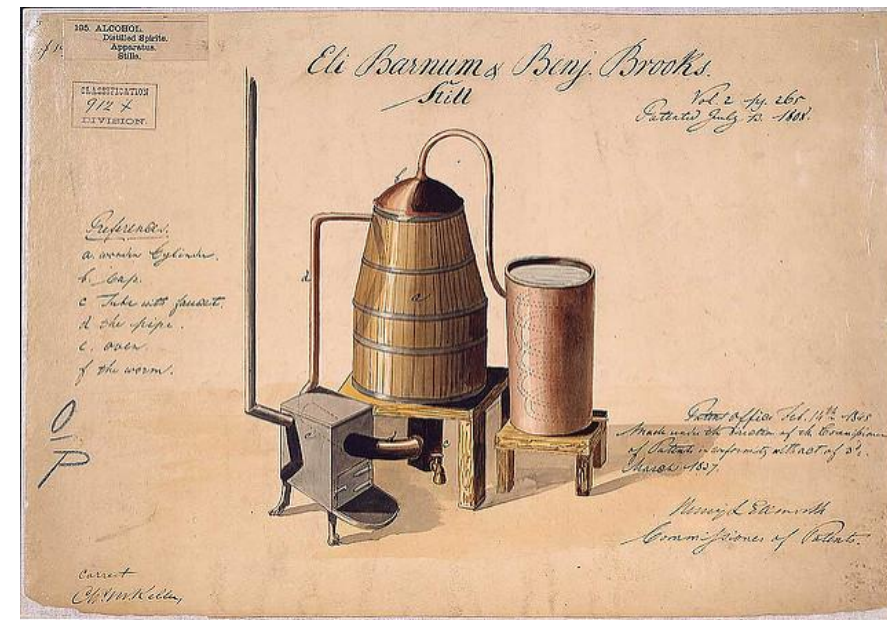 195. ALCOHOL.
Distilled Spirits.
Apparatus.
Stills.
CLASSIFICATION
912 X
DIVISION.
Eli Barnum & Benj. Brooks.
Still
Vol. 2 pg. 265
Patented July 13. 1808.
References.
a. wooden Cylinder.
b. Cap.
c Tube with faucet.
d the pipe.
e. oven.
f the worm.
b
d
a
c
e
O-P
Patent office Feb. 14th 1845
Made under the direction of the Commissioner
of Patents in conformity with act of 3d.
March 1837.
Henry L Ellsworth
Commissioner of Patents.
Correct
Chs. M. Keller,